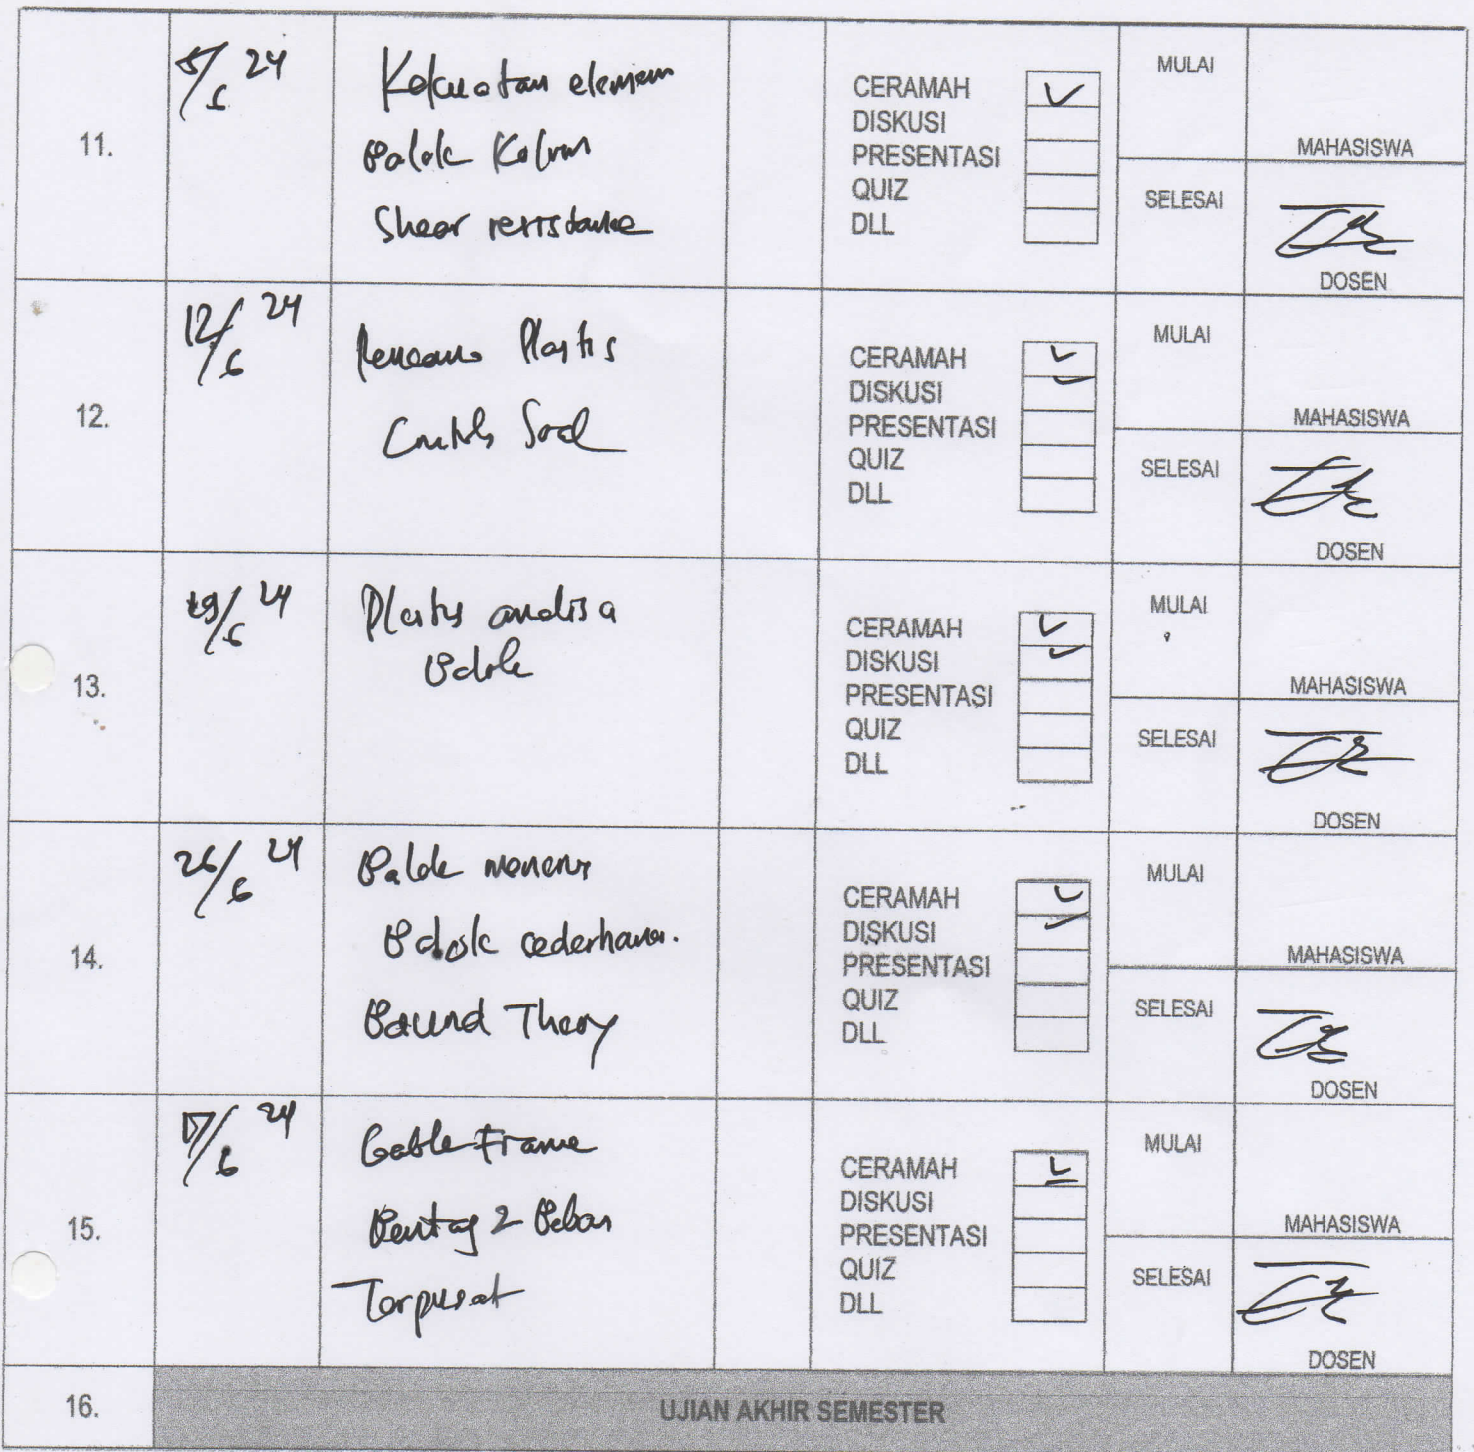 11.
5/6 24
Kekuatan elemen
Balok Kolom
Shear resistance
CERAMAH ✓
DISKUSI
PRESENTASI
QUIZ
DLL
MULAI
MAHASISWA
SELESAI
DOSEN
12.
12/6 24
Rencana Plastis
Contoh Soal
CERAMAH ✓
DISKUSI ✓
PRESENTASI
QUIZ
DLL
MULAI
MAHASISWA
SELESAI
DOSEN
13.
19/6 24
Plastis analisa
Balok
CERAMAH ✓
DISKUSI ✓
PRESENTASI
QUIZ
DLL
MULAI
MAHASISWA
SELESAI
DOSEN
14.
26/6 24
Balok menerus
Balok sederhana.
Bound Theory
CERAMAH ✓
DISKUSI ✓
PRESENTASI
QUIZ
DLL
MULAI
MAHASISWA
SELESAI
DOSEN
15.
/6 24
Gable Frame
Bentang 2 Beban
Terpusat
CERAMAH ✓
DISKUSI
PRESENTASI
QUIZ
DLL
MULAI
MAHASISWA
SELESAI
DOSEN
16.
UJIAN AKHIR SEMESTER